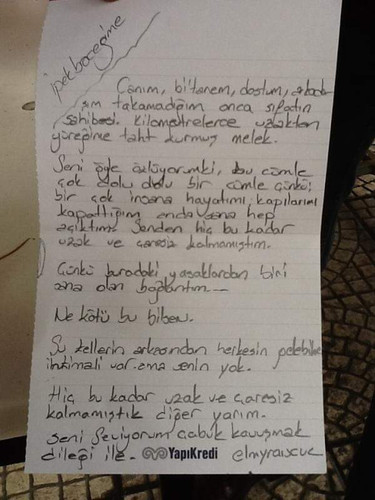 ipekböceğime
Canım, bi'tanem, dostum,
sın takamadığım onca sıfatın
sahibesi. Kilometrelerce uzaktan
yüreğime taht kurmuş melek.
Seni öyle özlüyorumki, bu cümle
çok dolu dolu bir cümle çünkü;
bir çok insana hayatımı, kapılarımı
kapattığım anda sana hep
açıktım. Senden hiç bu kadar
uzak ve çaresiz kalmamıştım.
Çünkü buradaki yasaklardan biri
sana olan bağlantım...
Ne kötü bu bilsen.
Şu tellerin arkasından herkesin gelebilme
ihtimali var ama senin yok.
Hiç bu kadar uzak ve çaresiz
kalmamıştık diğer yarım.
Seni Seviyorum çabuk kavuşmak
dileği ile. YapıKredi